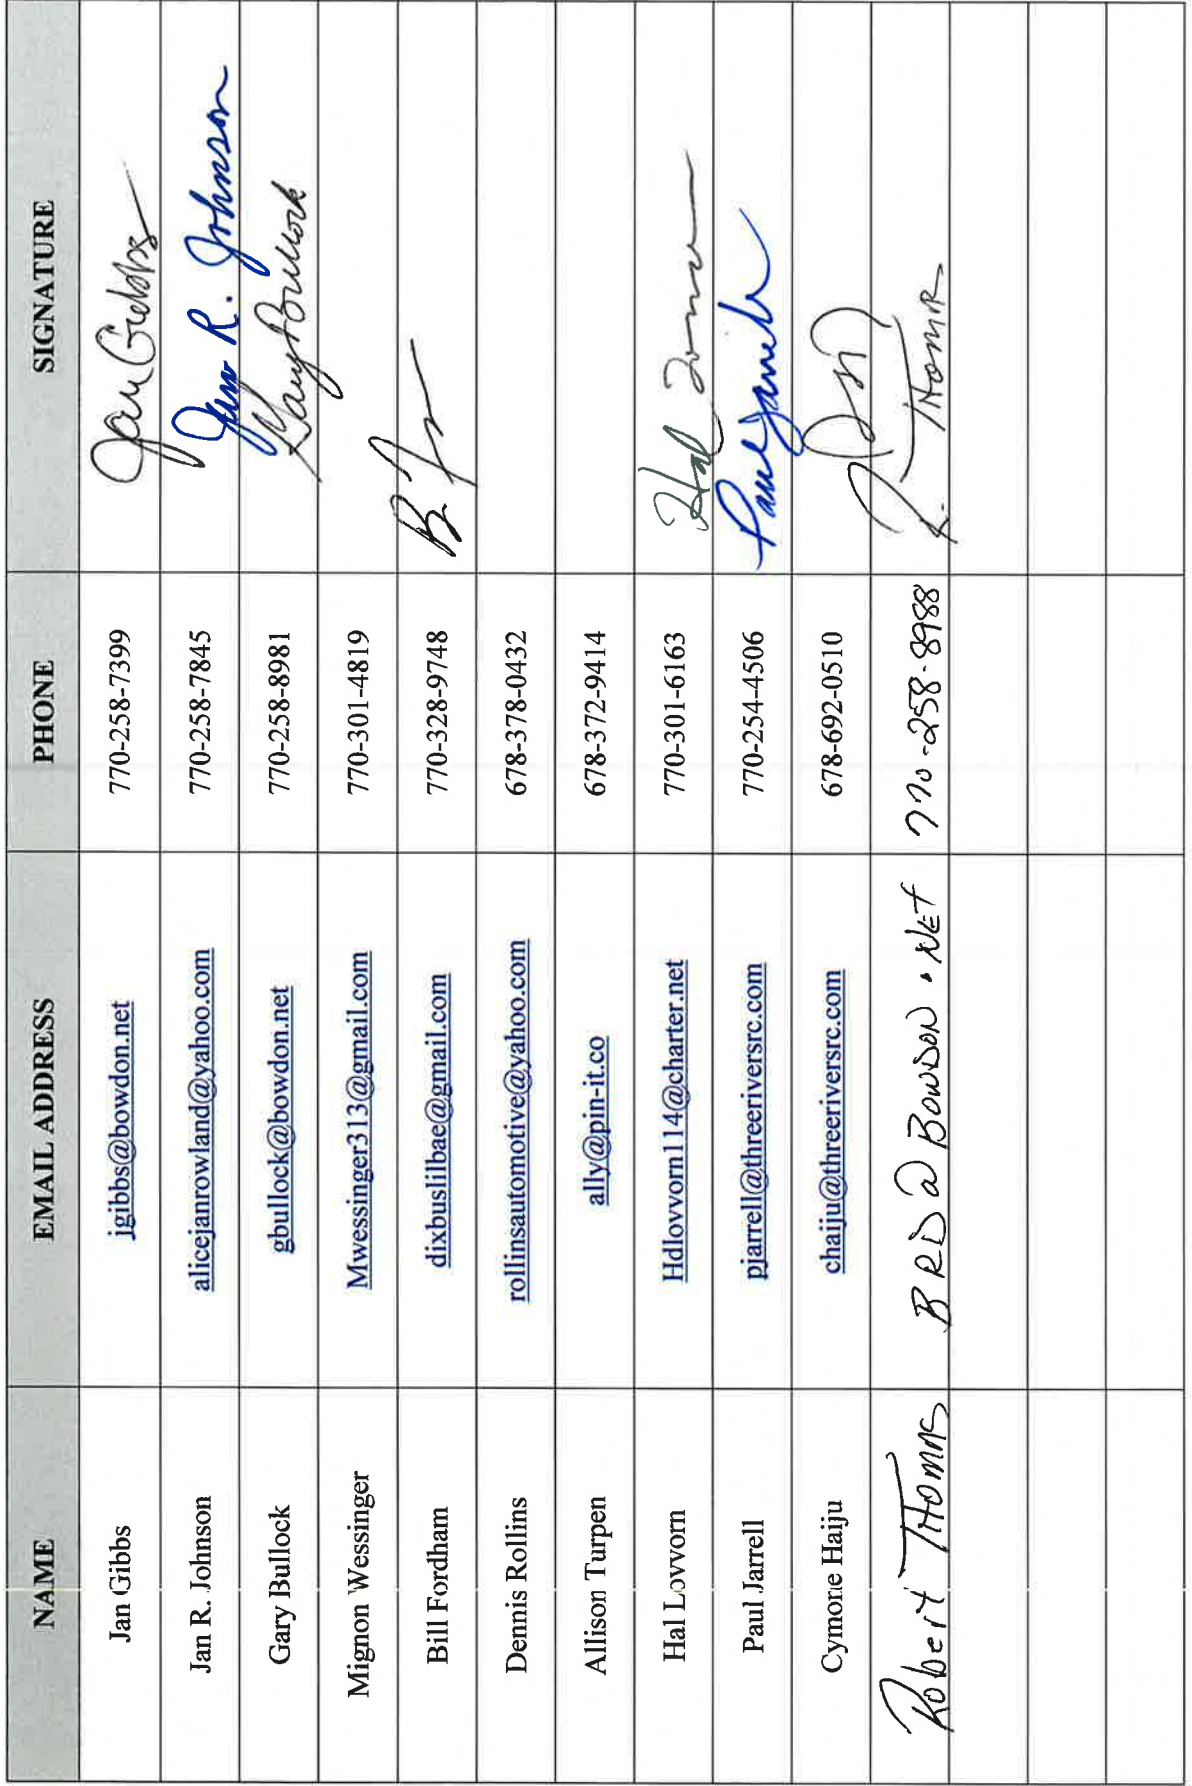 NAME EMAIL ADDRESS PHONE SIGNATURE
Jan Gibbs jgibbs@bowdon.net 770-258-7399 Jan Gibbs
Jan R. Johnson alicejanrowland@yahoo.com 770-258-7845 Jan R. Johnson
Gary Bullock gbullock@bowdon.net 770-258-8981 Gary Bullock
Mignon Wessinger Mwessinger313@gmail.com 770-301-4819
Bill Fordham dixbuslilbae@gmail.com 770-328-9748 B
Dennis Rollins rollinsautomotive@yahoo.com 678-378-0432
Allison Turpen ally@pin-it.co 678-372-9414
Hal Lovvorn Hdlovvorn114@charter.net 770-301-6163 Hal
Paul Jarrell pjarrell@threeriversrc.com 770-254-4506 Paul Jarrell
Cymone Haiju chaiju@threeriversrc.com 678-692-0510
Robert THOMAS BRD@BOWDON.NET 770-258-8988 R. THOMAS